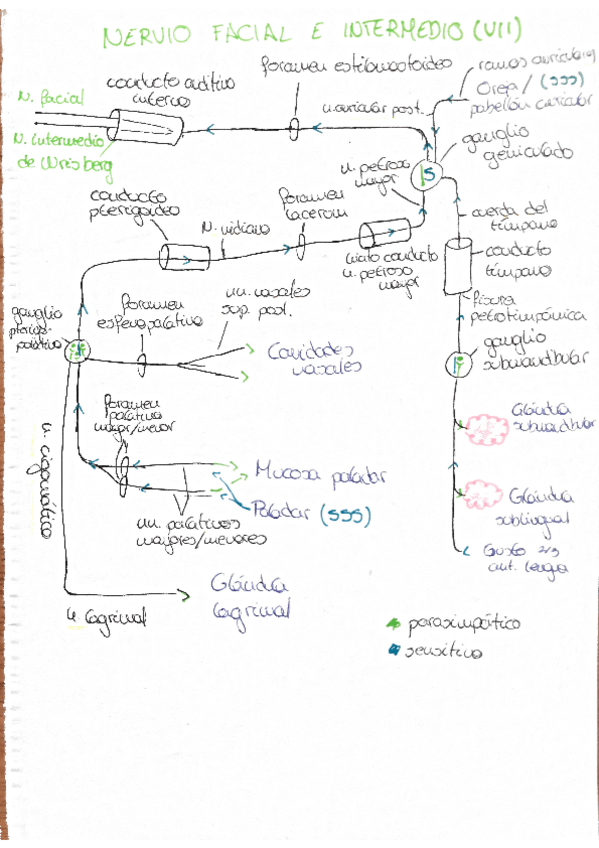 NERVIO FACIAL E INTERMEDIO (VII)
foramen estilomastoideo
ramos auriculares
Oreja / (SSS)
pabellón auricular
conducto auditivo
interno
N. facial
N. intermedio
de Wrisberg
n. auricular post.
ganglio
geniculado
S
n. petroso
mayor
conducto
pterigoideo
N. vidiano
foramen
lacerum
hiato conducto
n. petroso
mayor
cuerda del
tímpano
conducto
tímpano
fisura
petrotimpánica
ganglio
submandibular
P
ganglio
pterigo-
palatino
foramen
esfenopalatino
nn. nasales
sup. post.
Cavidades
nasales
Foramen
palatino
mayor/menor
Mucosa paladar
Paladar (SSS)
nn. palatinos
mayores/menores
n. cigomático
Glándula
submandibular
Glándula
sublingual
Gusto 2/3
ant. lengua
Glándula
lagrimal
n. lagrimal
parasimpático
sensitivo